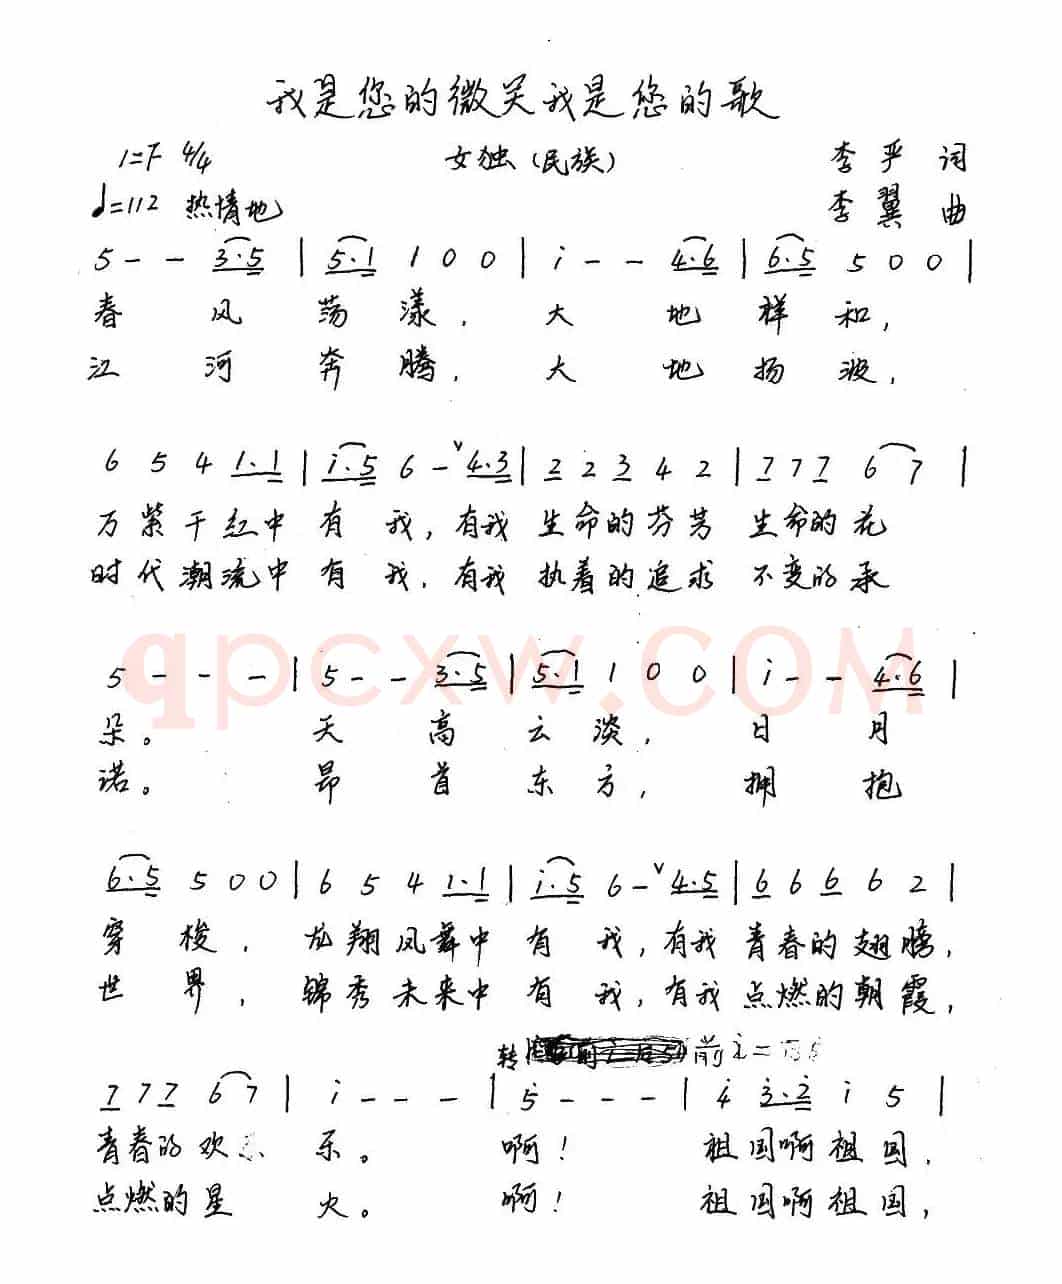 我是您的微笑我是您的歌
1=F 4/4 女独(民族) 李乎 词
♩=112 热情地 李翼 曲
5 - - 3·5 | 5·1 1 0 0 | i - - 4·6 | 6·5 5 0 0 |
春 风 荡 漾, 大 地 祥 和,
江 河 奔 腾, 大 地 扬 波,
6 5 4 1·1 | i·5 6 - ∨ 4·3 | 2 2 3 4 2 | 7 7 7 6 7 |
万紫千红中有我,有我生命的芬芳 生命的花
时代潮流中有我,有我执着的追求 不变的承
5 - - - | 5 - - 3·5 | 5·1 1 0 0 | i - - 4·6 |
朵。 天 高 云 淡, 日 月
诺。 昂 首 东 方, 拥 抱
6·5 5 0 0 | 6 5 4 1·1 | i·5 6 - ∨ 4·5 | 6 6 6 6 2 |
穿 梭, 龙翔凤舞中有我,有我青春的翅膀,
世 界, 锦秀未来中有我,有我点燃的朝霞,
转 前 i =
7 7 7 6 7 | i - - - | 5 - - - | 4 3·2 i 5 |
青春的欢 乐。 啊! 祖国啊祖国,
点燃的星 火。 啊! 祖国啊祖国,
qpcxw.COM